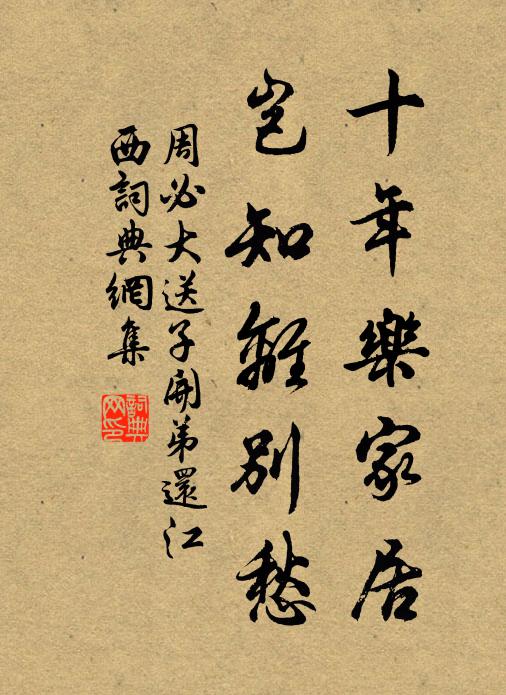 十年樂家居
豈知離別愁
周必大送子開弟還江
西詞典網集
詞典網印